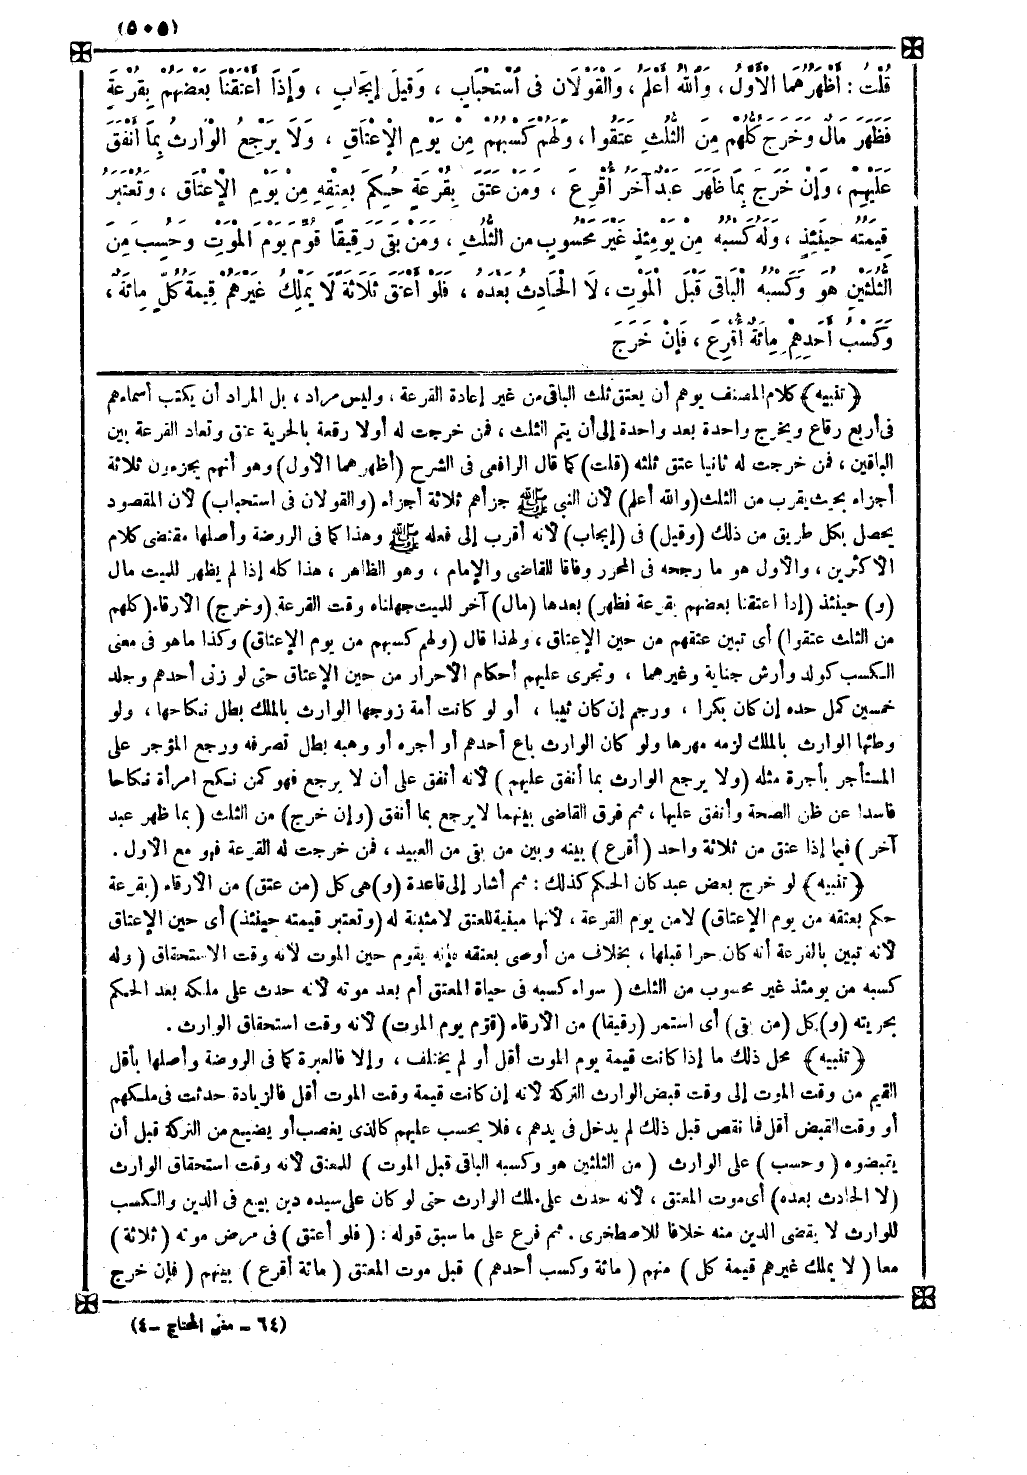 (٥٠٥)
قُلْتُ : أَظْهَرُهُمَا الْأَوَّلُ ، وَاللهُ أَعْلَمُ ، وَالْقَوْلَانِ فِي اسْتِحْبَابٍ ، وَقِيلَ إِيجَابٍ ، وَإِذَا أَعْتَقْنَا بَعْضَهُمْ بِقُرْعَةٍ
فَظَهَرَ مَالٌ وَخَرَجَ كُلُّهُمْ مِنَ الثُّلُثِ عَتَقُوا ، وَلَهُمْ كَسْبُهُمْ مِنْ يَوْمِ الْإِعْتَاقِ ، وَلَا يَرْجِعُ الْوَارِثُ بِمَا أَنْفَقَ
عَلَيْهِمْ ، وَإِنْ خَرَجَ بِمَا ظَهَرَ عَبْدٌ آخَرُ أُقْرِعَ ، وَمَنْ عَتَقَ بِقُرْعَةٍ حُكِمَ بِعِتْقِهِ مِنْ يَوْمِ الْإِعْتَاقِ ، وَتُعْتَبَرُ
قِيمَتُهُ حِينَئِذٍ ، وَلَهُ كَسْبُهُ مِنْ يَوْمِئِذٍ غَيْرَ مَحْسُوبٍ مِنَ الثُّلُثِ ، وَمَنْ بَقِيَ رَقِيقًا قُوِّمَ يَوْمَ الْمَوْتِ وَحُسِبَ مِنَ
الثُّلُثَيْنِ هُوَ وَكَسْبُهُ الْبَاقِي قَبْلَ الْمَوْتِ ، لَا الْحَادِثُ بَعْدَهُ ، فَلَوْ أَعْتَقَ ثَلَاثَةً لَا يَمْلِكُ غَيْرَهُمْ قِيمَةُ كُلٍّ مِائَةٌ ،
وَكَسَبَ أَحَدُهُمْ مِائَةً أُقْرِعَ ، فَإِنْ خَرَجَ
﴿ تنبيه ﴾ كلام المصنف يوهم أن يعتق ثلث الباقى من غير إعادة القرعة ، وليس مراد ، بل المراد أن يكتب أسماءهم
فى أربع رقاع ويخرج واحدة بعد واحدة إلى أن يتم الثلث ، فمن خرجت له أولا رقعة بالحرية عتق وتعاد القرعة بين
الباقين ، فمن خرجت له ثانيا عتق ثلثه (قلت) كما قال الرافعى فى الشرح (أظهرهما الأول) وهو أنهم يجزءون ثلاثة
أجزاء بحيث يقرب من الثلث (والله أعلم) لأن النبى ﷺ جزأهم ثلاثة أجزاء (والقولان فى استحباب) لأن المقصود
يحصل بكل طريق من ذلك (وقيل) فى (إيجاب) لأنه أقرب إلى فعله ﷺ وهذا كما فى الروضة وأصلها مقتضى كلام
الأكثرين ، والأول هو ما رجحه فى المحرر وفاقا للقاضى والإمام ، وهو الظاهر ، هذا كله إذا لم يظهر للميت مال
(و) حينئذ (إذا اعتقنا بعضهم بقرعة فظهر) بعدها (مال) آخر للميت جهلناه وقت القرعة (وخرج) الأرقاء (كلهم
من الثلث عتقوا) أى تبين عتقهم من حين الإعتاق ، ولهذا قال (ولهم كسبهم من يوم الإعتاق) وكذا ماهو فى معنى
الكسب كولد وأرش جناية وغيرهما ، وتجرى عليهم أحكام الأحرار من حين الإعتاق حتى لو زنى أحدهم وجلد
خمسين كمل حده إن كان بكرا ، ورجم إن كان ثيبا ، أو لو كانت أمة زوجها الوارث بالملك بطل نكاحها ، ولو
وطئها الوارث بالملك لزمه مهرها ولو كان الوارث باع أحدهم أو أجره أو وهبه بطل تصرفه ورجع المؤجر على
المستأجر بأجرة مثله (ولا يرجع الوارث بما أنفق عليهم) لأنه أنفق على أن لا يرجع فهو كمن نكح امرأة نكاحا
فاسدا عن ظن الصحة وأنفق عليها ، ثم فرق القاضى بينهما لا يرجع بما أنفق (وإن خرج) من الثلث (بما ظهر عبد
آخر) فيما إذا عتق من ثلاثة واحد (أقرع) بينه وبين من بقى من العبيد ، فمن خرجت له القرعة فهو مع الأول .
﴿ تنبيه ﴾ لو خرج بعض عبد كان الحكم كذلك : ثم أشار إلى قاعدة (و) هى كل (من عتق) من الأرقاء (بقرعة
حكم بعتقه من يوم الإعتاق) لا من يوم القرعة ، لأنها مبينة للعتق لا مثبتة له (وتعتبر قيمته حينئذ) أى حين الإعتاق
لأنه تبين بالقرعة أنه كان حرا قبلها ، بخلاف من أوصى بعتقه فإنه يقوم حين الموت لأنه وقت الاستحقاق (وله
كسبه من يومئذ غير محسوب من الثلث) سواء كسبه فى حياة المعتق أم بعد موته لأنه حدث على ملكه بعد الحكم
بحريته (و) كل (من بقى) أى استمر (رقيقا) من الأرقاء (قوّم يوم الموت) لأنه وقت استحقاق الوارث .
﴿ تنبيه ﴾ محل ذلك ما إذا كانت قيمة يوم الموت أقل أو لم يختلف ، وإلا فالعبرة كما فى الروضة وأصلها بأقل
القيم من وقت الموت إلى وقت قبض الوارث التركة لأنه إن كانت قيمة وقت الموت أقل فالزيادة حدثت فى ملكهم
أو وقت القبض أقل فما نقص قبل ذلك لم يدخل فى يدهم ، فلا يحسب عليهم كالذى يغصب أو يضيع من التركة قبل أن
يقبضوه (وحسب) على الوارث (من الثلثين هو وكسبه الباقى قبل الموت) للمعتق لأنه وقت استحقاق الوارث
(لا الحادث بعده) أى موت المعتق ، لأنه حدث على ملك الوارث حتى لو كان على سيده دين بيع فى الدين والكسب
للوارث لا يقضى الدين منه خلافا للاصطخرى . ثم فرع على ما سبق قوله : (فلو أعتق) فى مرض موته (ثلاثة)
معا (لا يملك غيرهم قيمة كل) منهم (مائة وكسب أحدهم) قبل موت المعتق (مائة أقرع) بينهم (فإن خرج
(٦٤ - مغنى المحتاج - ٤)